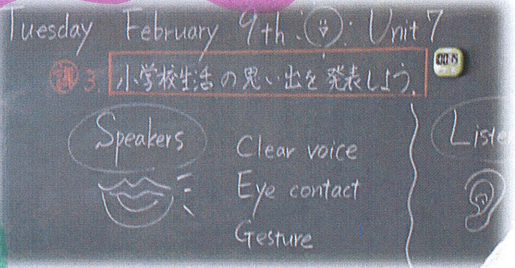 Tuesday February 9th. Unit 7
課 3. 小学校生活の思い出を発表しよう。
Speakers
Clear voice
Eye contact
Gesture
Liste